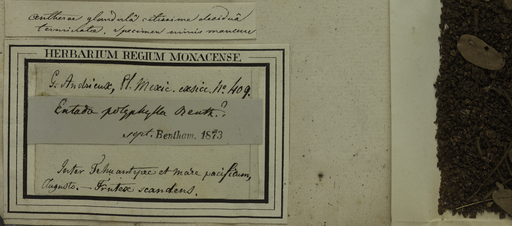 antherae glandulâ citissime deciduâ
terminatae. Specimen nimis mancum
HERBARIUM REGIUM MONACENSE
G. Andrieux, Pl. Mexic. exsicc. No. 409.
Entada polyphylla Benth.?
sept. Bentham. 1873
Inter Tehuantepec et mare pacificum,
Augusto. — Frutex scandens.